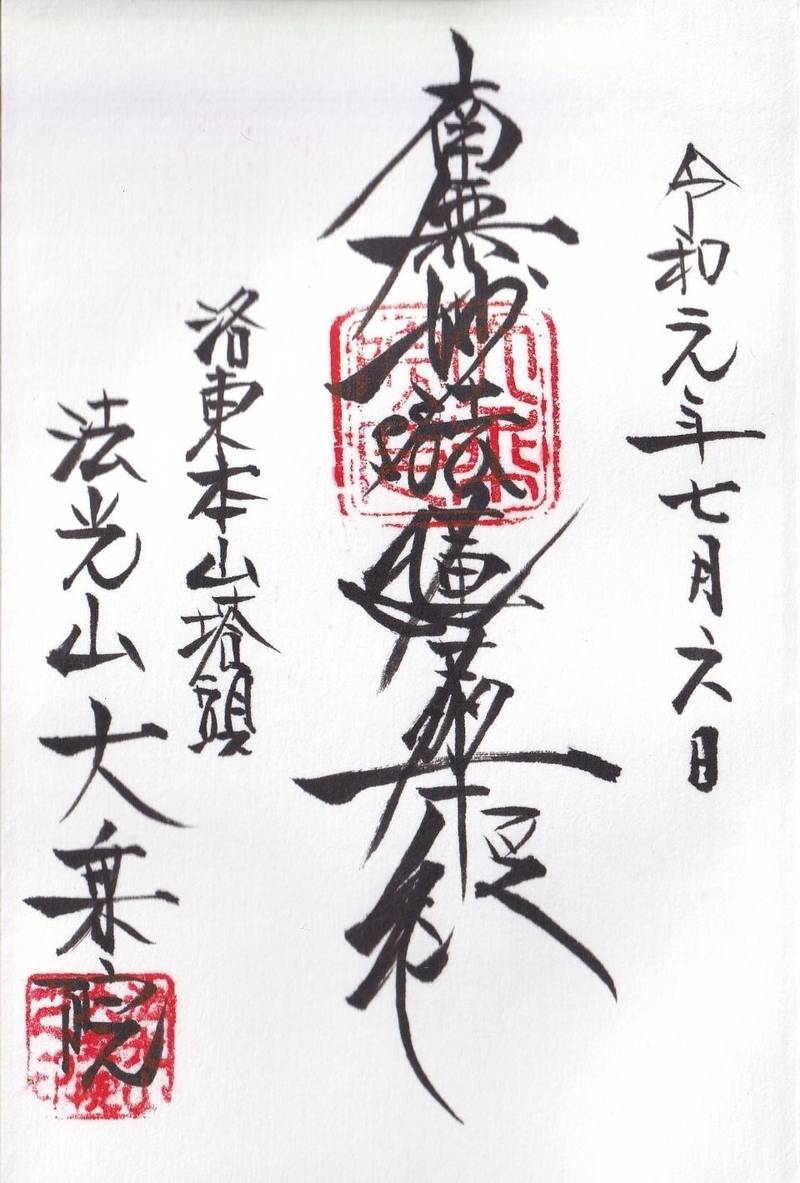 令和元年七月六日
南無妙法蓮華経
洛東本山塔頭
法光山大乗院